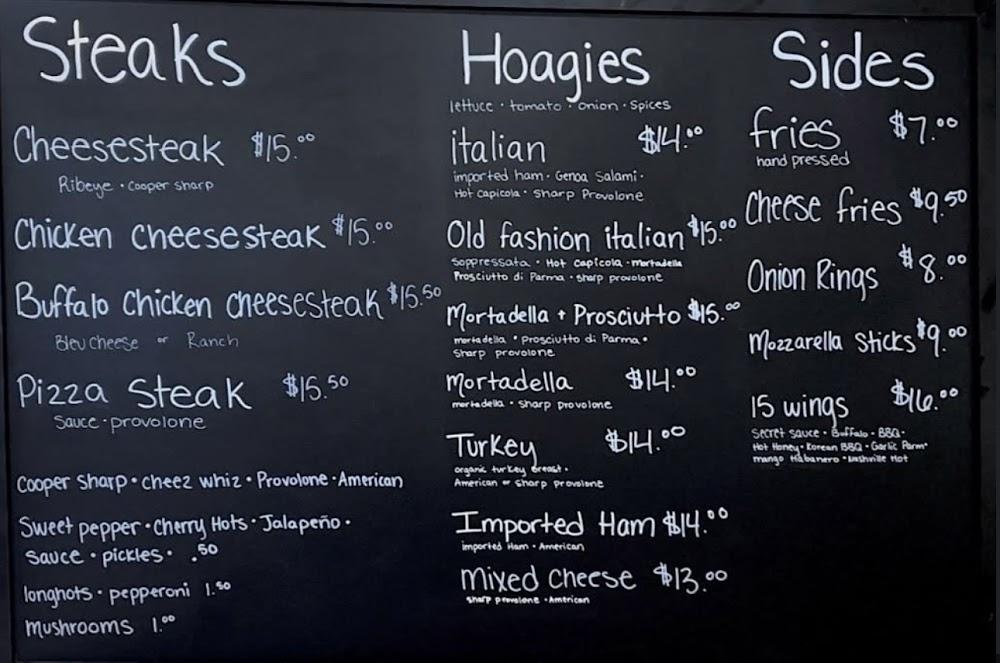 Steaks
Cheesesteak $15.00
Ribeye · Cooper Sharp
Chicken Cheesesteak $15.00
Buffalo Chicken Cheesesteak $15.50
Bleu Cheese or Ranch
Pizza Steak $15.50
Sauce · provolone
Cooper Sharp · Cheez Whiz · Provolone · American
Sweet pepper · Cherry Hots · Jalapeño ·
Sauce · pickles · .50
longhots · pepperoni 1.50
Mushrooms 1.00
Hoagies
lettuce · tomato · onion · spices
italian $14.00
imported ham · Genoa Salami ·
Hot capicola · Sharp Provolone
Old fashion italian $15.00
Soppressata · Hot Capicola · mortadella
Prosciutto di Parma · sharp provolone
Mortadella + Prosciutto $15.00
mortadella · Prosciutto di Parma ·
Sharp provolone
Mortadella $14.00
mortadella · sharp provolone
Turkey $14.00
organic turkey breast ·
American or sharp provolone
Imported Ham $14.00
imported Ham · American
Mixed Cheese $13.00
sharp provolone · American
Sides
fries $7.00
hand pressed
Cheese fries $9.50
Onion Rings $8.00
Mozzarella Sticks $9.00
15 wings $16.00
Secret sauce · Buffalo · BBQ ·
Hot Honey · Korean BBQ · Garlic Parm ·
mango Habanero · Nashville Hot